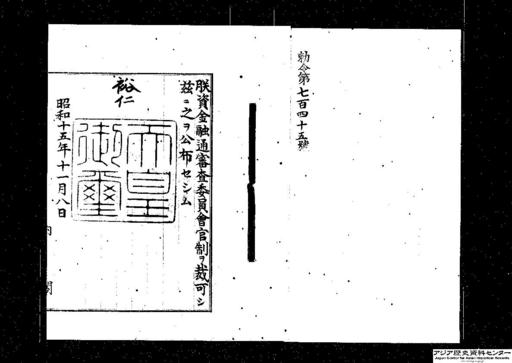 勅令第七百四十五號
朕資金融通審査委員會官制ヲ裁可シ
茲ニ之ヲ公布セシム
裕仁
天皇御璽
昭和十五年十一月八日
内閣
アジア歴史資料センター
Japan Center for Asian Historical Records